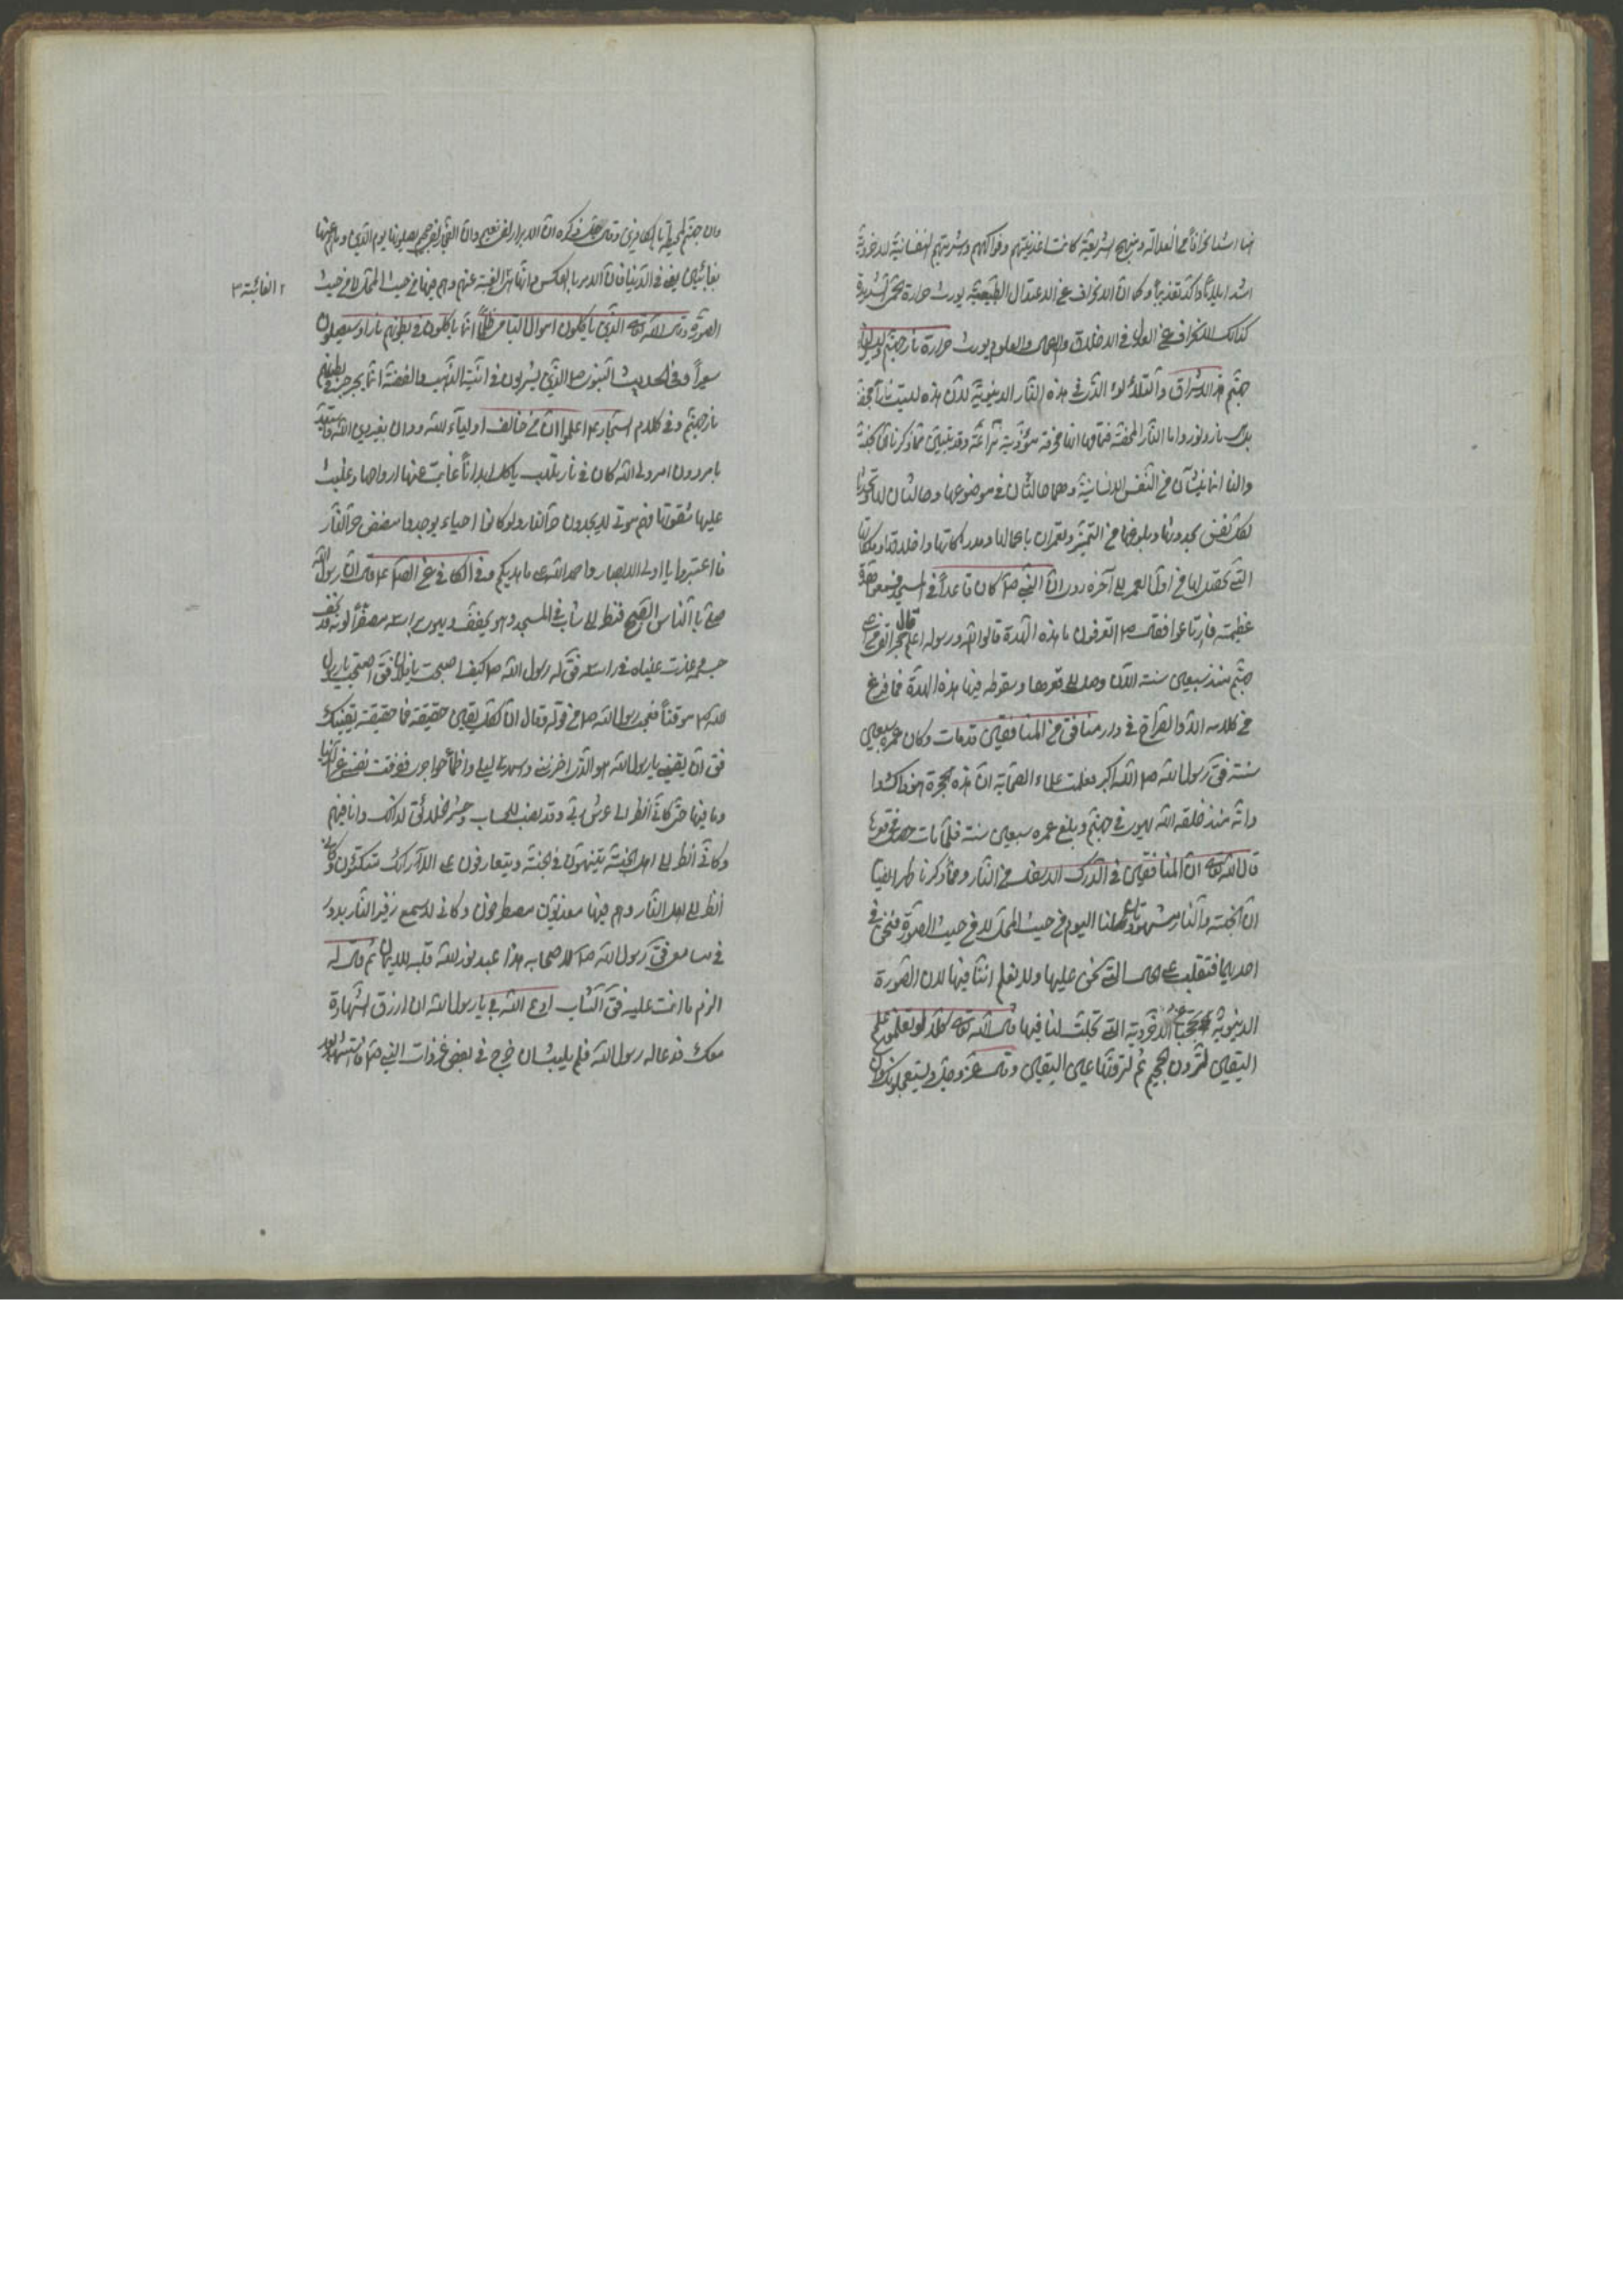 اشد ايلاماً واكد تعذيباً وكما ان الانحراف عن الاعتدال الطبيعية يورث حرارة الحمى الشديدة
كذلك الانحراف عن العدل في الاخلاق والاعمال والعلوم يورث حرارة نار جهنم وليس لها
جهنم هذا الاشراق والتلألؤ الذي في هذه النار الدنيوية لان هذه ليست ناراً محضة
بل نار ونور واما النار المحضة فانها محرقة مؤذية نزاعة وقد تبين مما ذكرنا ان الجنة
والنار تنشئان من النفس الانسانية وهما حالتان في موضوعها
لكل نفس بحدوثها وبلوغها من التميز وتعمران باعمالها ومدركاتها واخلاقها وملكاتها
التي تحصل لها من اول العمر الى آخره روى ان النبي ص كان قاعداً في المسجد فسمعوا هدة
عظيمة فارتاعوا فقال ص اتعرفون ما هذه الهدة قالوا الله ورسوله اعلم قال حجر القي من اعلى
جهنم منذ سبعين سنة الآن وصل الى قعرها وسقوطه فيها هذه الهدة فما فرغ
من كلامه الا والصراخ في دار منافق من المنافقين قد مات وكان عمره سبعين
سنة فقال رسول الله ص الله اكبر فعلمت علماء الصحابة ان هذه الحجرة هو ذاك
وانه منذ خلقه الله يهوى في جهنم وبلغ عمره سبعين سنة فلما مات حصل في قعرها
قال الله تعالى ان المنافقين في الدرك الاسفل من النار ومما ذكرنا ظهر ايضا
ان الجنة والنار مشهودتان لنا اليوم من حيث المحل لا من حيث الصورة فنحن في
احديهما نتقلب على الحال التي نحن عليها ولا نعلم اننا فيها لان الصورة
الدنيوية تحجبنا عن الاخروية التي تجلت لنا فيها قال الله تعالى كلا لو تعلمون علم
اليقين لترون الجحيم ثم لترونها عين اليقين وقال عز وجل ويستعجلونك
وان جهنم لمحيطة بالكافرين وقال جل ذكره ان الابرار لفي نعيم وان الفجار لفي جحيم يصلونها يوم الدين وما هم عنها
بغائبين يعني في الدنيا فان الامر بالعكس وانها هي الغائبة عنهم وهم فيها من حيث المحل لا من حيث
الغائبة
الصورة وقال الله تعالى الذين ياكلون اموال اليتامى ظلماً انما ياكلون في بطونهم ناراً وسيصلون
سعيراً وفي الحديث النبوي ص الذي يشرب في آنية الذهب والفضة انما يجرجر في بطنه
نار جهنم وفي كلام السجاد ع اعلموا ان من خالف اولياء الله ودان بغير دين الله واستبد
بامره دون امر ولي الله كان في نار تلهب ياكل ابداناً غابت عنها ارواحها وغلبت
عليها شقوتها فهم موتى لا يجدون حر النار ولو كانوا احياء لوجدوا مضض حر النار
فاعتبروا يا اولي الابصار واحمدوا الله على ما هديكم وفي الكافي عن الصادق ع قال ان رسول الله
صلى بالناس الصبح فنظر الى شاب في المسجد وهو يخفق ويهوى براسه مصفراً لونه قد نحف
جسمه وغارت عيناه في راسه فقال له رسول الله ص كيف اصبحت يا فلان فقال اصبحت يا رسول
الله ص موقناً فعجب رسول الله ص من قوله وقال ان لكل يقين حقيقة فما حقيقة يقينك
فقال ان يقيني يا رسول الله هو الذي احزنني واسهر ليلي واظمأ هواجري فعزفت نفسي عن الدنيا
وما فيها حتى كاني انظر الى عرش ربي وقد نصب للحساب وحشر الخلائق لذلك وانا فيهم
وكاني انظر الى اهل الجنة يتنعمون في الجنة ويتعارفون على الارائك متكئون وكاني
انظر الى اهل النار وهم فيها معذبون مصطرخون وكاني الآن اسمع زفير النار يدور
في مسامعي فقال رسول الله ص لاصحابه هذا عبد نور الله قلبه بالايمان ثم قال له
الزم ما انت عليه فقال الشاب ادع الله لي يا رسول الله ان ارزق الشهادة
معك فدعا له رسول الله فلم يلبث ان خرج في بعض غزوات النبي ص فاستشهد بعد